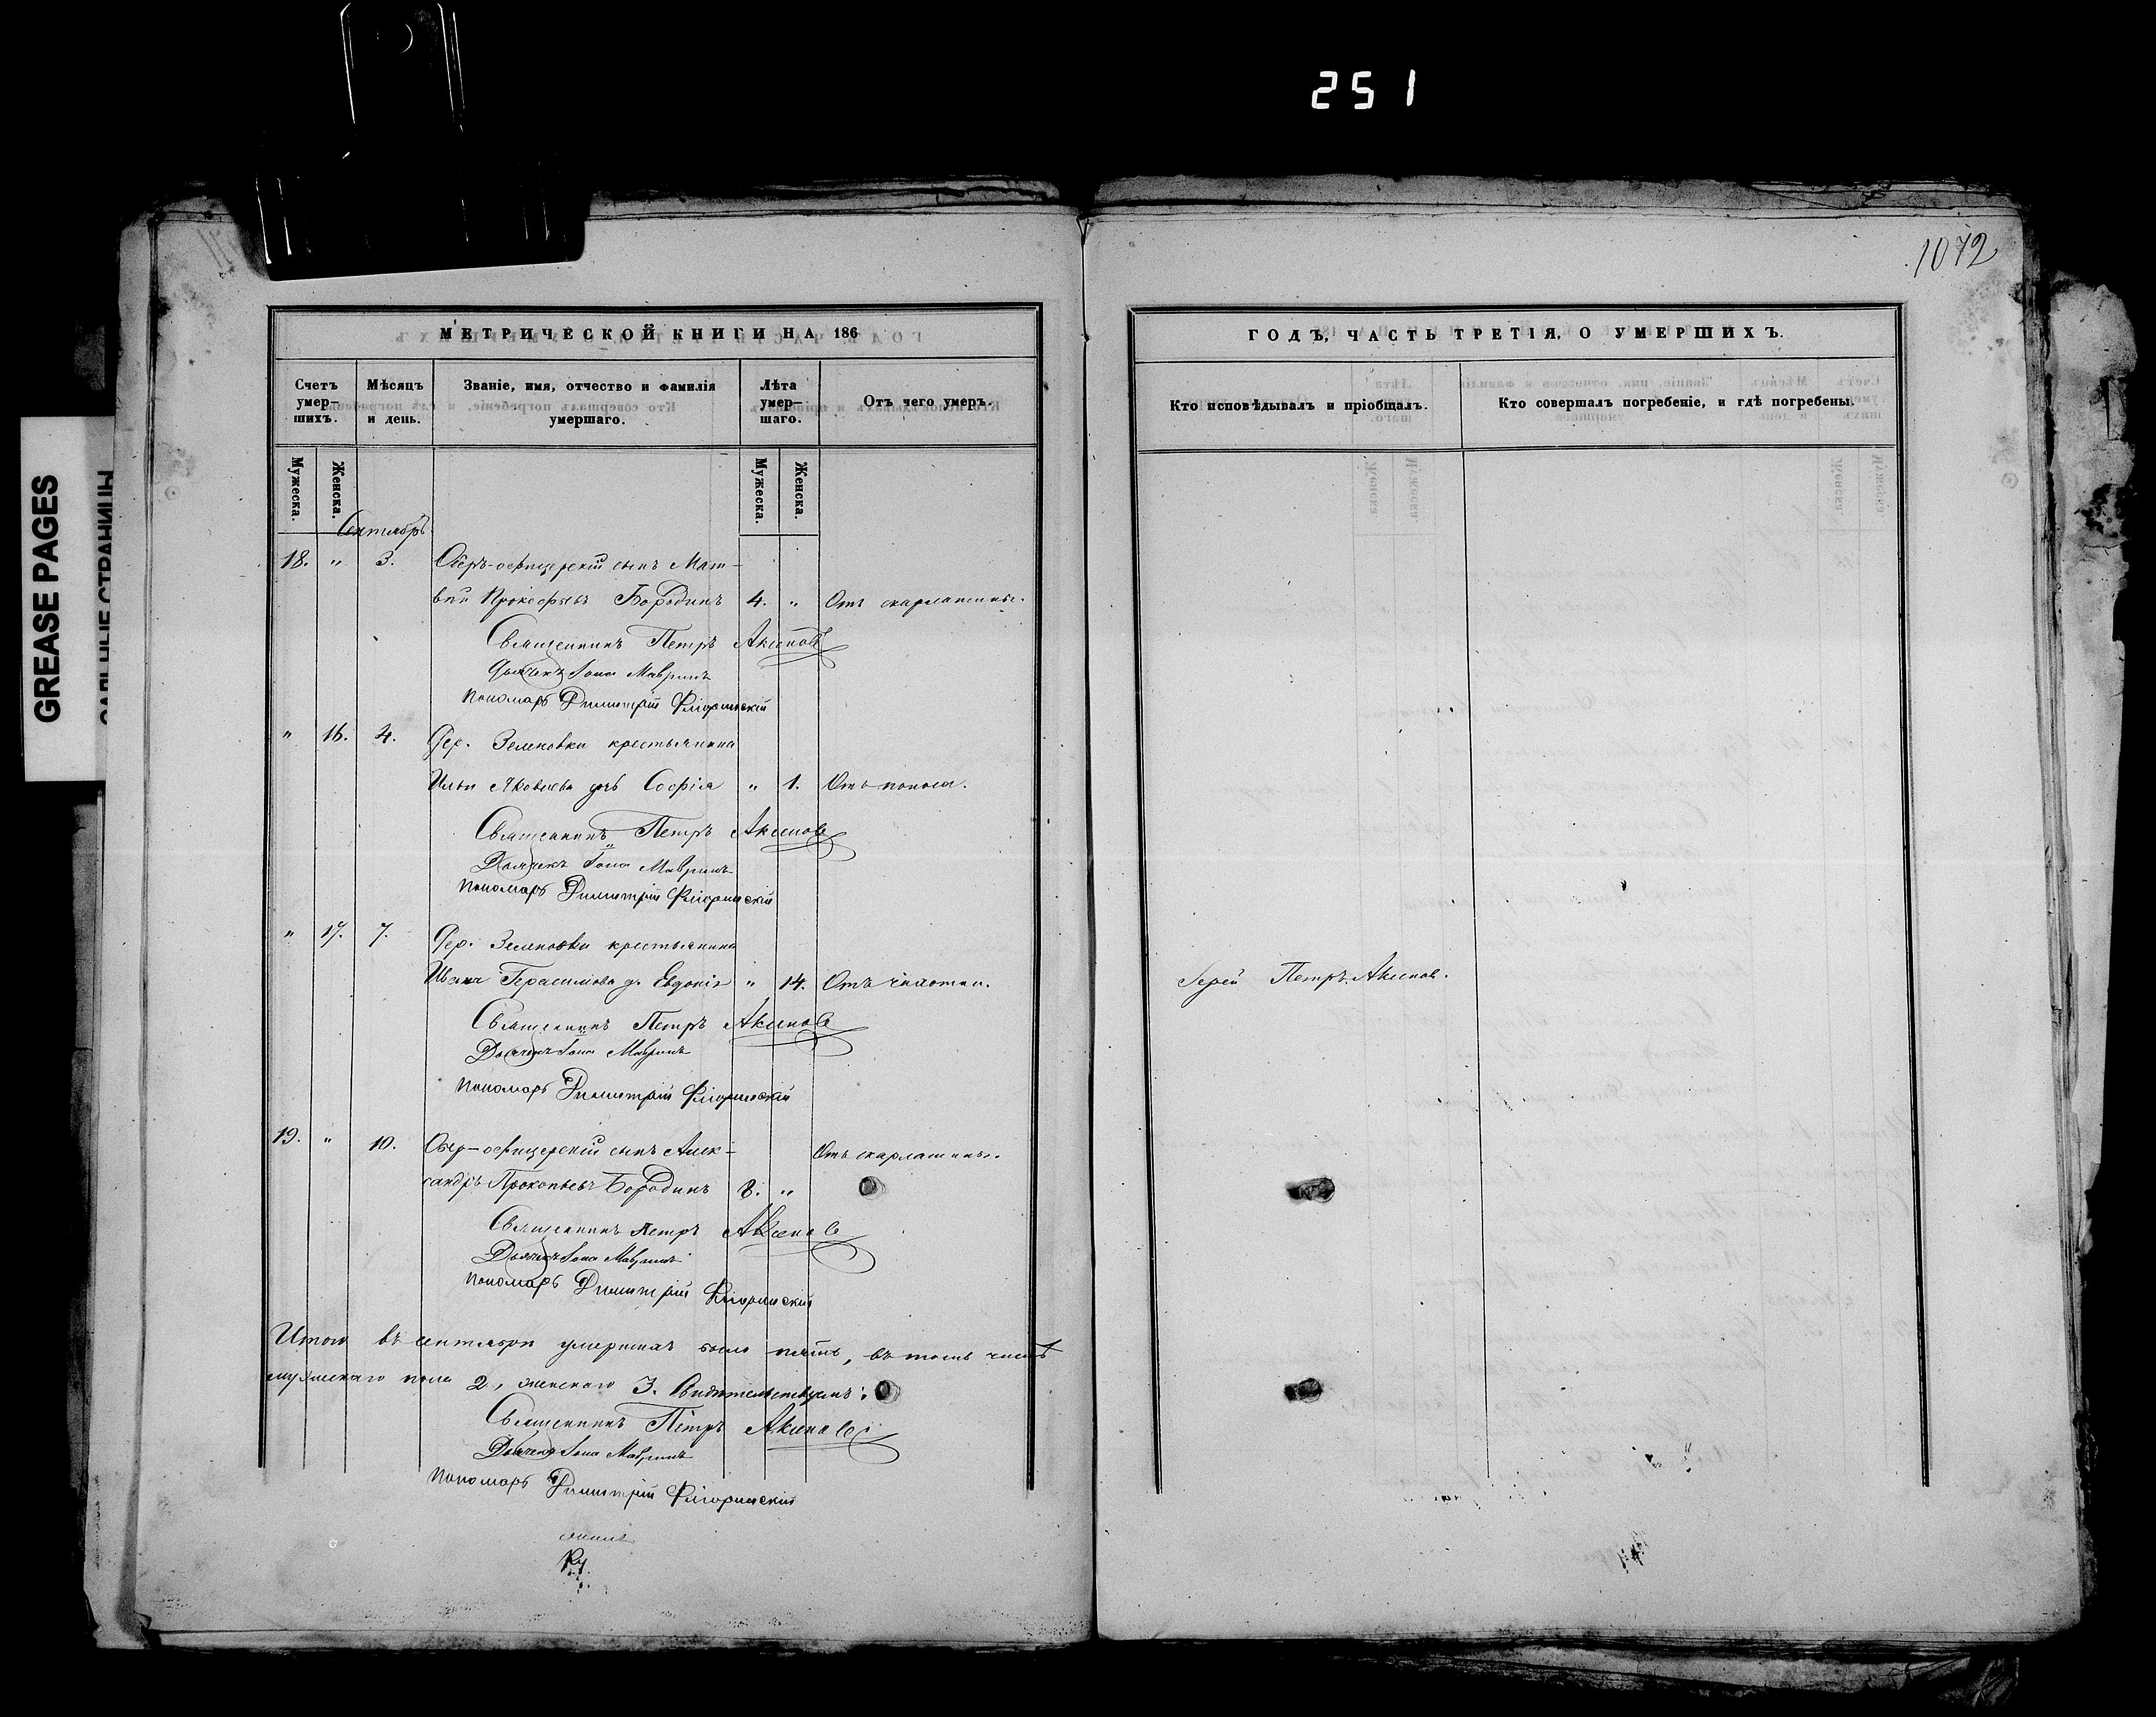 251
GREASE PAGES
САЛЬНЫЕ СТРАНИЦЫ
1072
МЕТРИЧЕСКОЙ КНИГИ НА 186
Счетъ умер-шихъ.
Мѣсяцъ и день.
Званіе, имя, отчество и фамилія умершаго.
Лѣта умер-шаго.
Отъ чего умеръ.
Мужеска.
Женска.
Мужеска.
Женска.
Сентябрь
18. " 3. Оберъ-офицерскій сынъ Мат-
вѣй Прокофьевъ Бородинъ 4. " Отъ скарлатины.
Священникъ Петръ Аксеновъ
Дьячекъ Іона Мавринъ
Пономарь Димитрій Флоринскій
" 16. 4. Дер. Зеленовки крестьянина
Ильи Яковлева дчь Софія " 1. Отъ поноса.
Священникъ Петръ Аксеновъ
Дьячекъ Іона Мавринъ
Пономарь Димитрій Флоринскій
" 17. 7. Дер. Зеленовки крестьянина
Ивана Герасимова д. Евдокія " 14. Отъ чахотки.
Священникъ Петръ Аксеновъ
Дьячекъ Іона Мавринъ
Пономарь Димитрій Флоринскій
19. " 10. Обер-офицерскій сынъ Алек- Отъ скарлатины.
сандръ Прокопьевъ Бородинъ 8. "
Священникъ Петръ Аксеновъ
Дьячекъ Іона Мавринъ
Пономарь Димитрій Флоринскій
Итого въ сентябрѣ умершихъ было пять, въ томъ числѣ
мужескаго пола 2, женскаго 3. Свидѣтельствуемъ:
Священникъ Петръ Аксеновъ
Дьячекъ Іона Мавринъ
Пономарь Димитрій Флоринскій
ГОДЪ, ЧАСТЬ ТРЕТІЯ, О УМЕРШИХЪ.
Кто исповѣдывалъ и пріобщалъ.
Кто совершалъ погребеніе, и гдѣ погребены.
Іерей Петръ Аксенов.